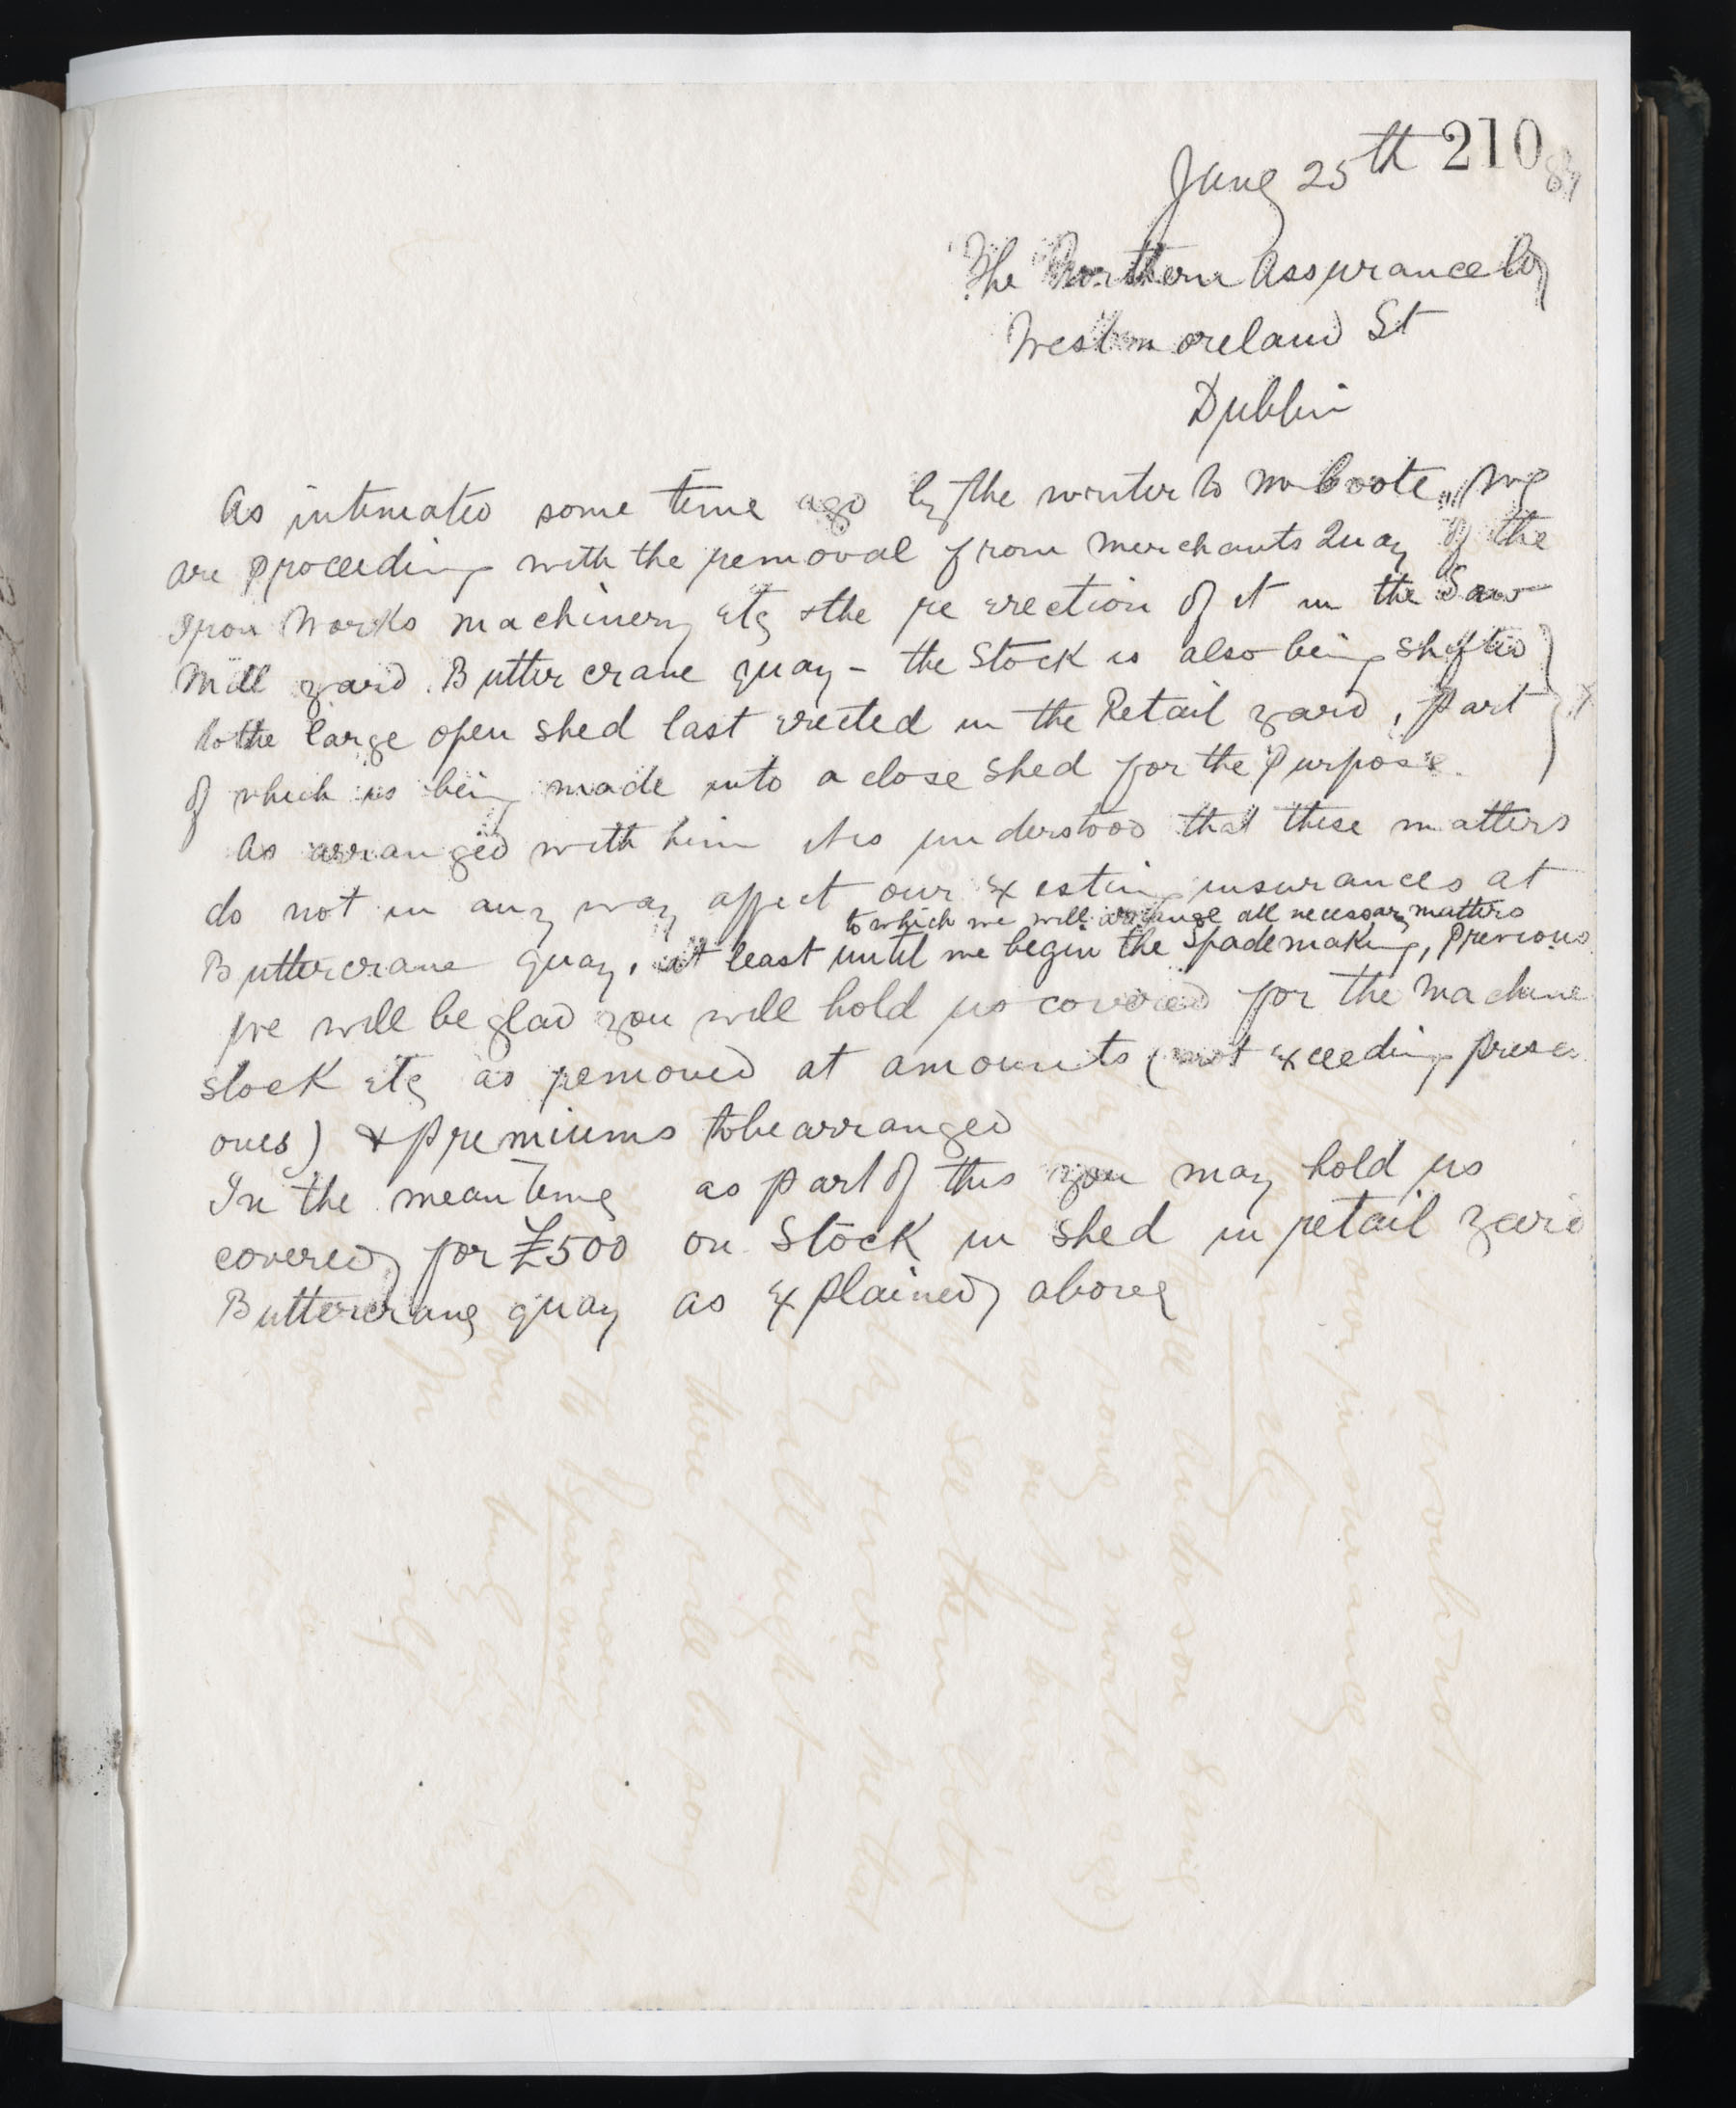 210
June 25th 89
The Northern Assurance Co
Westmoreland St
Dublin
As intimated some time ago by the writer to Mr Coote, we
are proceeding with the removal from Merchants Quay of the
Iron Works machinery etc & the re erection of it in the Saw
Mill yard Buttercrane quay - the Stock is also being shifted
to the large open shed last erected in the Retail yard, part
of which is being made into a close shed for the purpose.
As arranged with him it is understood that these matters
do not in any way affect our existing insurances at
to which we will arrange all necessary matters
Buttercrane quay, at least until we begin the Spademaking, previous
We will be glad you will hold us covered for the machine
stock etc as removed at amounts (not exceeding presen
ones) & premiums to be arranged
In the meantime as part of this you may hold us
covered for £500 on Stock in shed in retail yard
Buttercrane quay as explained above